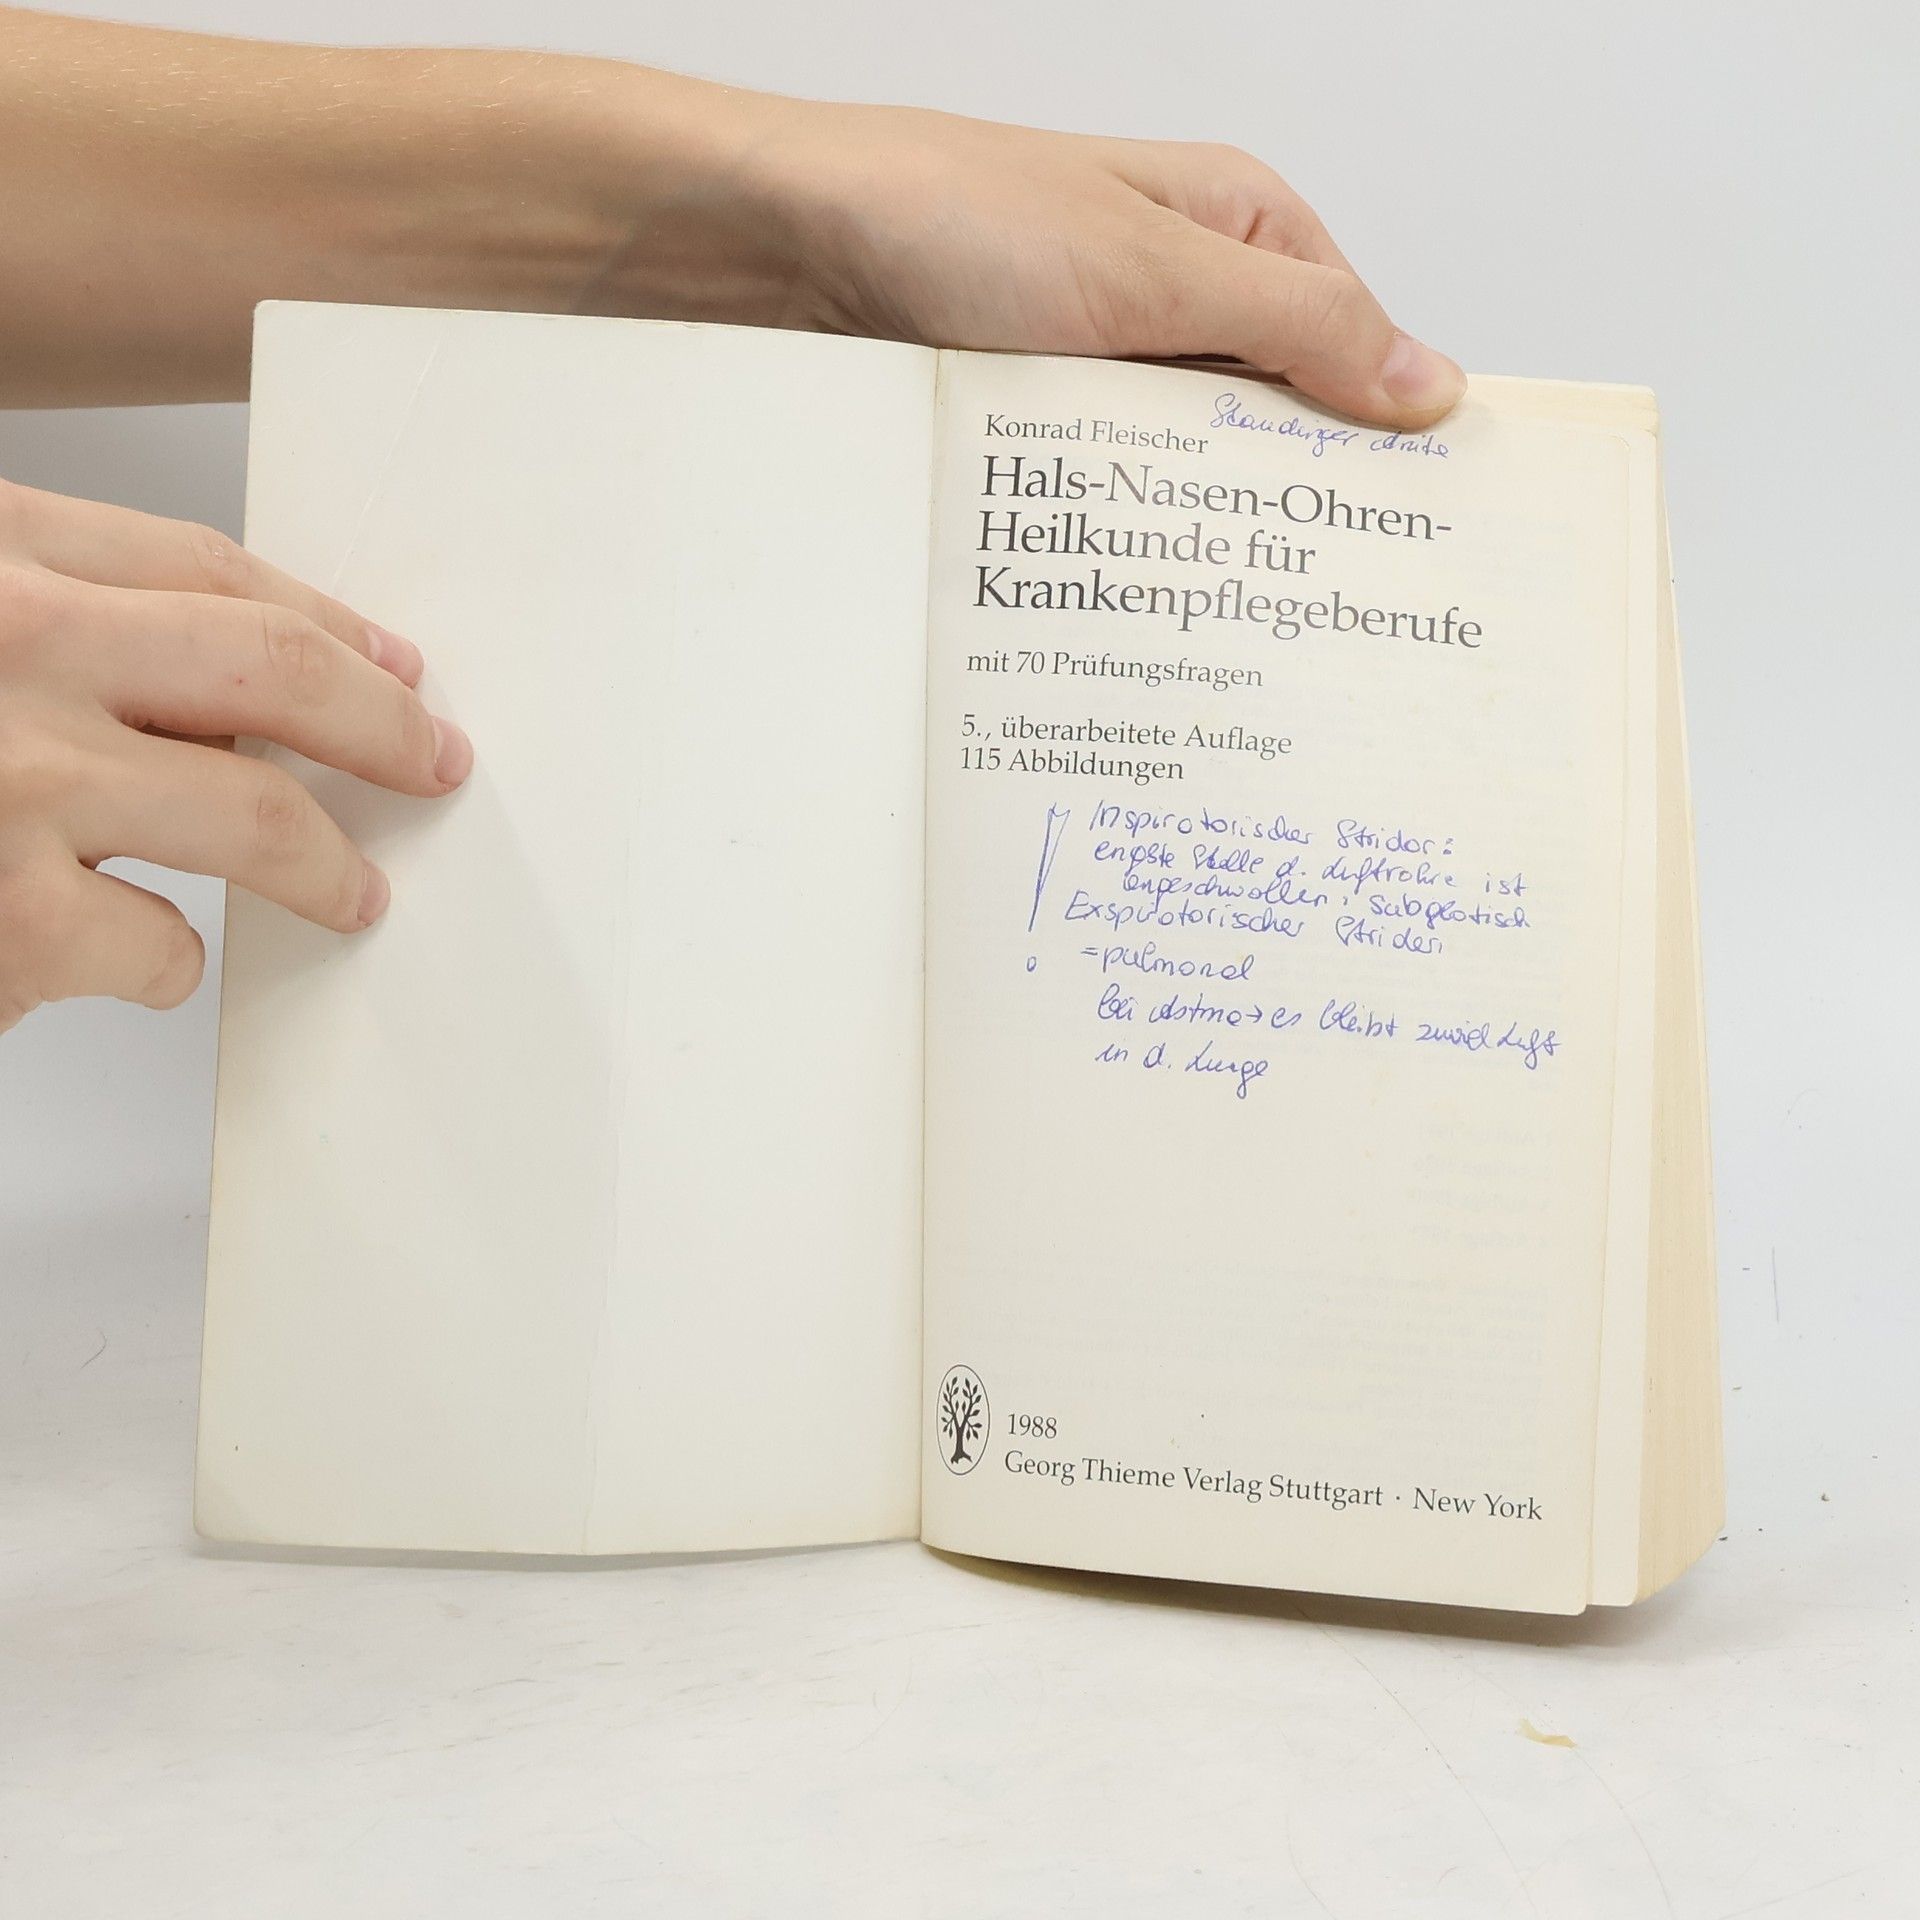 Staudinger Anita
Konrad Fleischer
Hals-Nasen-Ohren-
Heilkunde für
Krankenpflegeberufe
mit 70 Prüfungsfragen
5., überarbeitete Auflage
115 Abbildungen
! Inspiratorischer Stridor:
engste Stelle d. Luftröhre ist
angeschwollen, subglotisch
Exspiratorischer Stridor
=pulmonal
bei Astma→es bleibt zuviel Luft
in d. Lunge
1988
Georg Thieme Verlag Stuttgart · New York